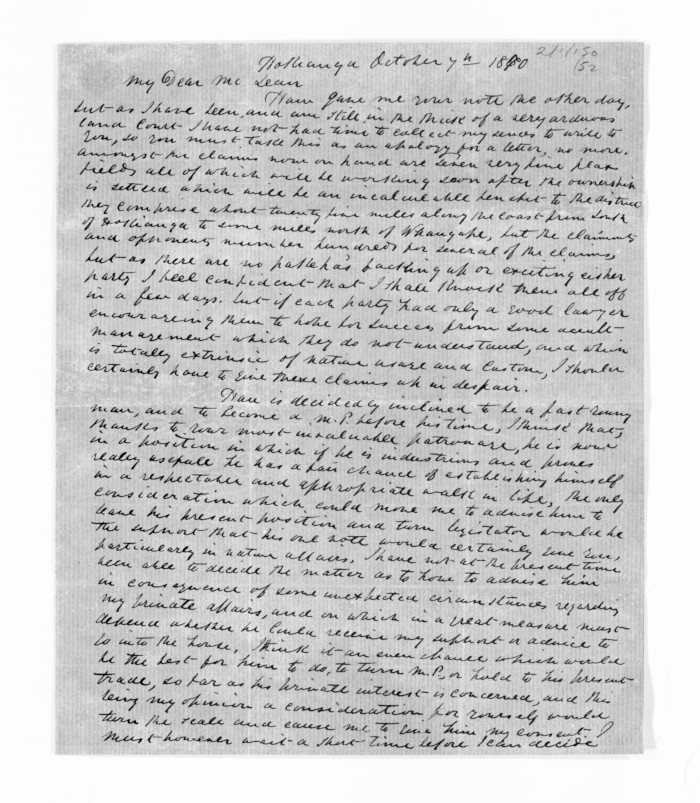 Hokianga October 7th 1870
My Dear McLean
Ham gave me your note the other day,
but as I have been, and am still in the thick of a very arduous
land Court I have not had time to collect my senses to write to
you, so you must take this as an apology for a letter, no more.
Amongst the claims now on hand are seven very fine
fields all of which will be working soon after the ownership
is settled which will be an incalculable benefit to the district
they comprise about twenty five miles along the coast from South
of Hokianga to some miles north of Whangape, but the claimants
and opponents number hundreds for several of the claims,
but as there are no pakeha's backing up or exciting either
party I feel confident that I shall knock them all off
in a few days. but if each party had only a good lawyer
encourageing them to hope for success from some occult
management which they do not understand, and which
is totally extrinsic of native usage and Custom, I should
certainly have to give these claims up in despair.
Ham is decidedly inclined to be a fast young
man, and to become a M.P. before his time, I think that,
thanks to your most invaluable patronage, he is now
in a position in which if he is industrious and proves
really usefull he has a fair chance of establishing himself
in a respectable and appropriate walk in life, the only
consideration which could move me to advise him to
leave his present position and turn legistator would be
the support that his one vote would certainly give you,
particularly in native affairs. I have not at the present time
been able to decide the matter as to how to advise him
in consequence of some unexpected circumstances regarding
my private affairs, and on which in a great measure must
depend whether he could receive my support or advice to
go into the house, I think it an even chance which would
be the best for him to do, to turn M.P. or hold to his present
trade, so far as his private interest is concerned, and this
being my opinion a consideration for yourself would
turn the scale and cause me to give him my consent, I
must however wait a short time before I can decide